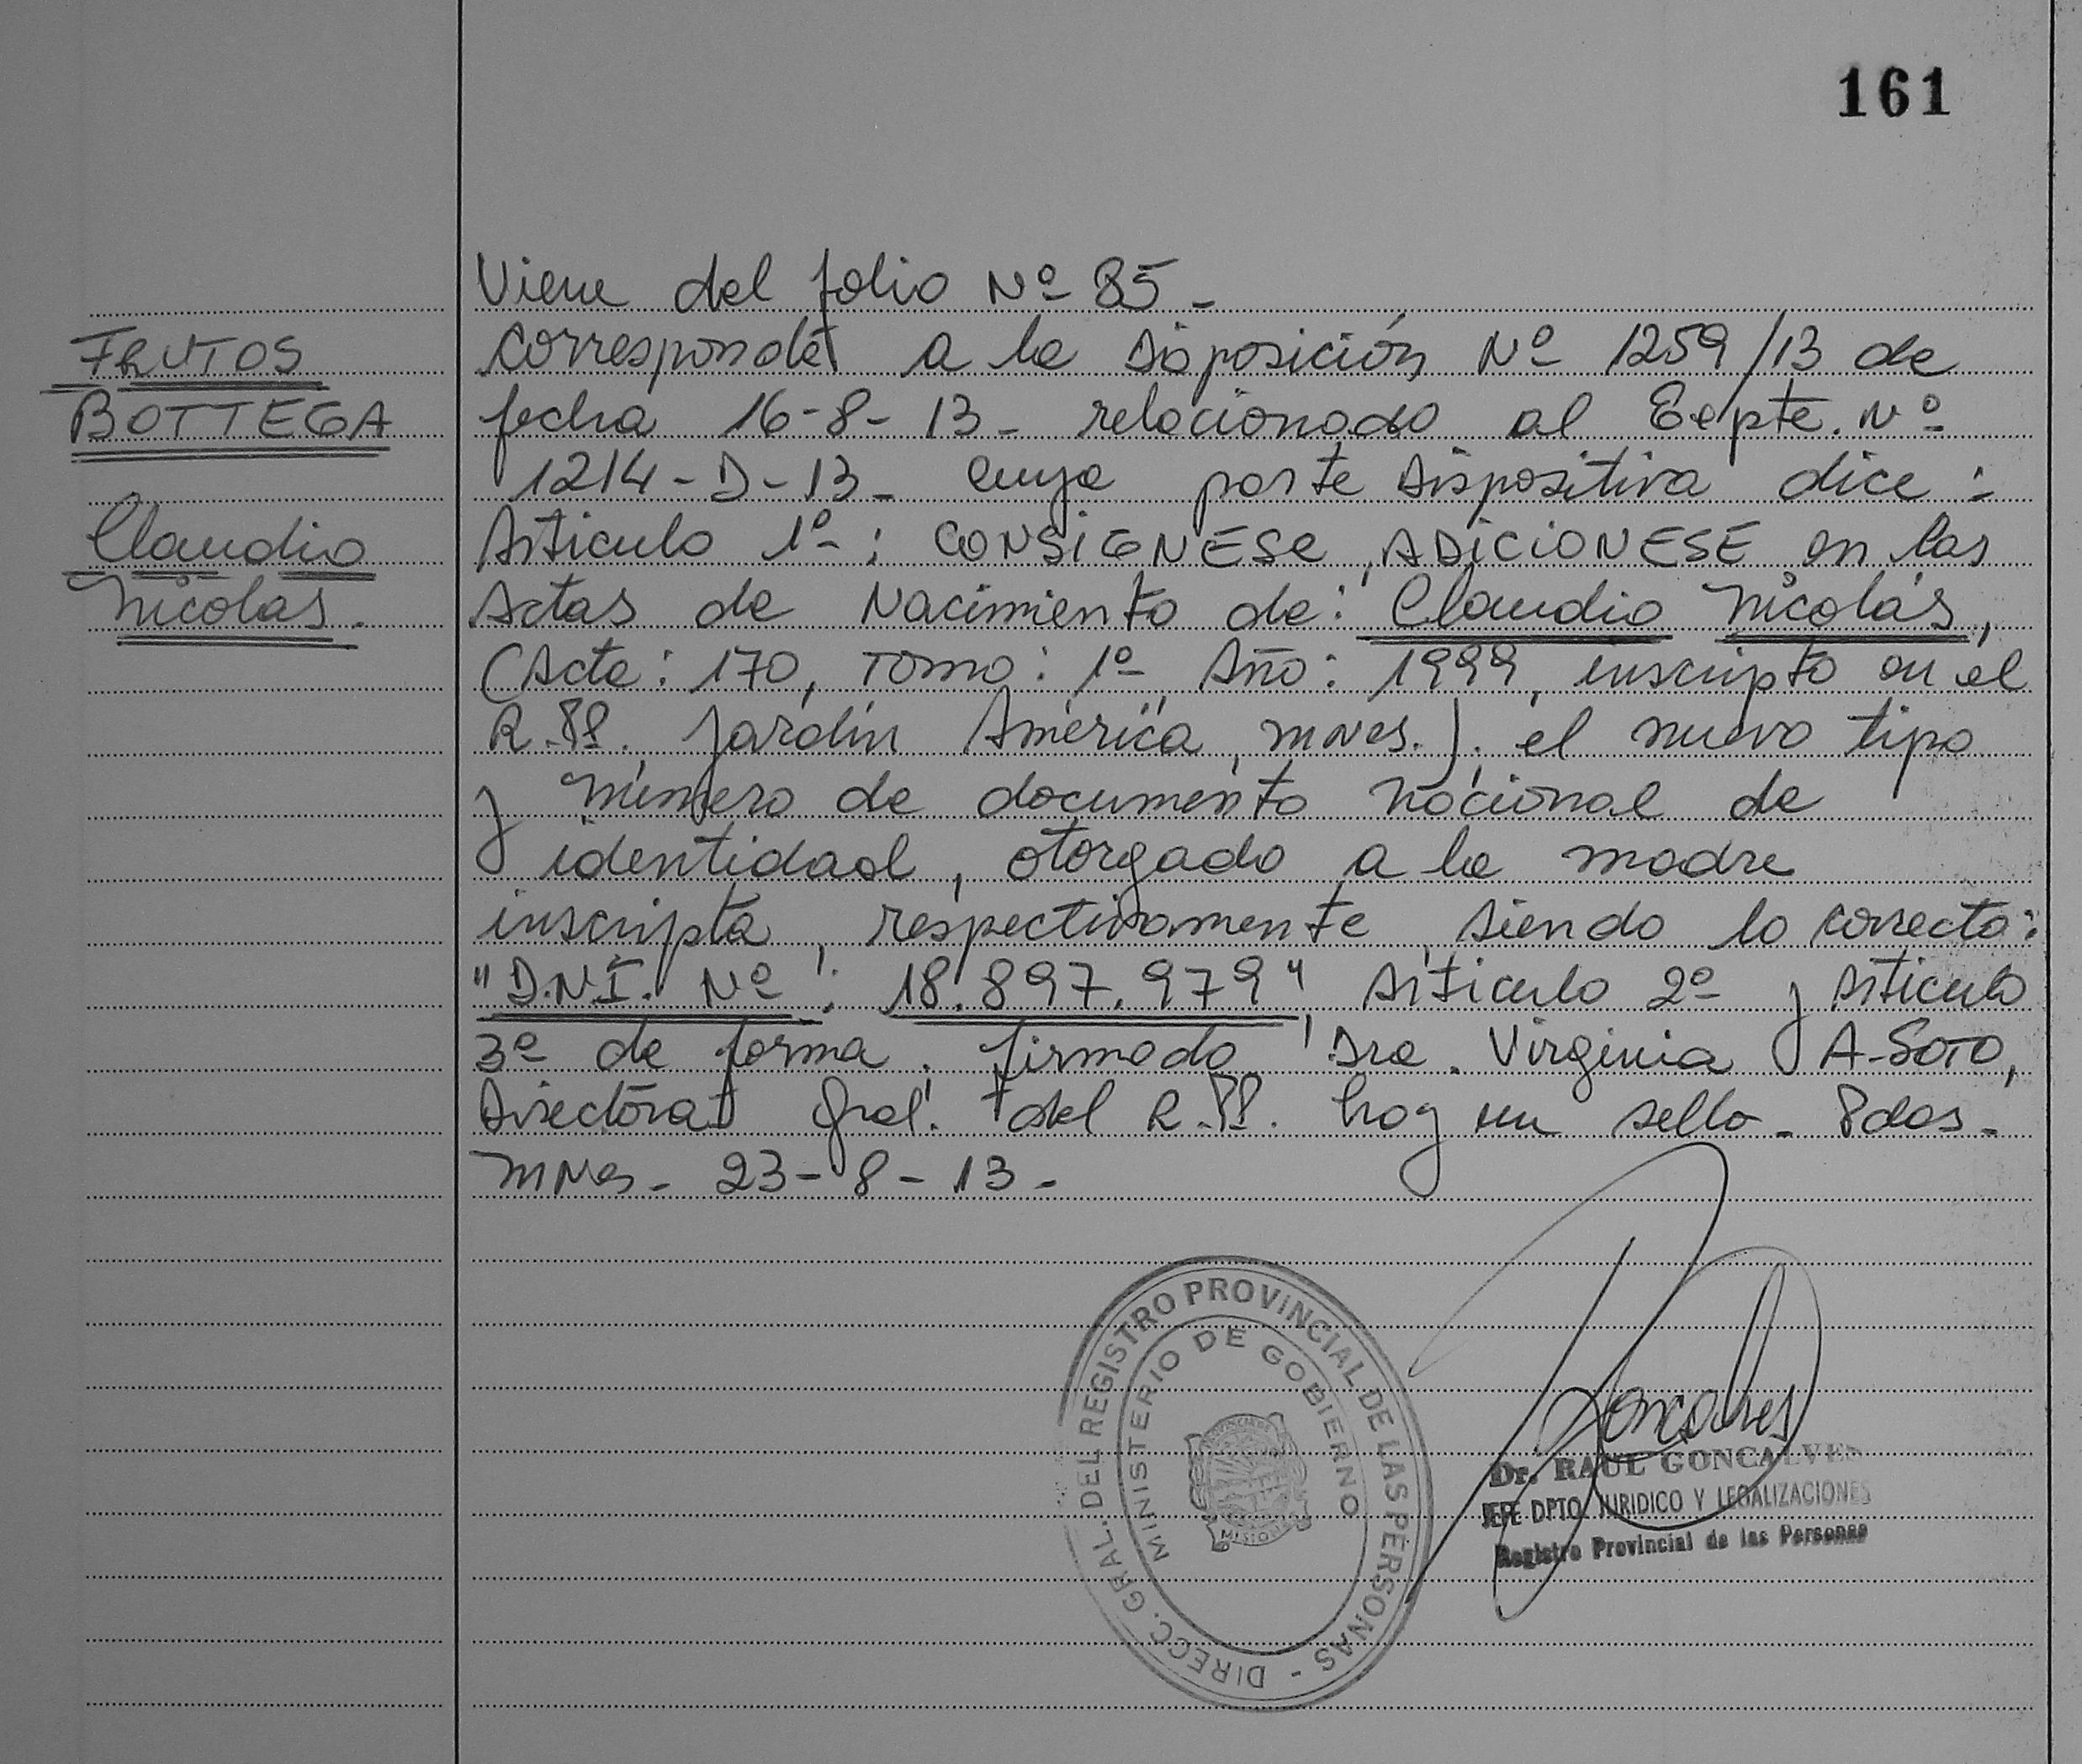 161
Viene del folio Nº 85 -
FRUTOS
BOTTEGA
Claudio
Nicolas.
corresponde a la Disposición Nº 1259/13 de
fecha 16-8-13- relacionado al Expte. Nº
1214-D-13- cuya parte Dispositiva dice:
Articulo 1º: CONSIGNESE, ADICIONESE en las
Actas de Nacimiento de: Claudio Nicolás,
(Acta: 170, Tomo: 1º Año: 1999, inscripto en el
R.PP. Jardín América, Mnes.). el nuevo tipo
y número de documento nacional de
identidad, otorgado a la madre
inscripta, respectivamente, siendo lo correcto:
"D.N.I. Nº: 18.897.979" Articulo 2º y Articulo
3º de forma. firmado Dra. Virginia A-SOTO,
Directora Gral. del R.PP. hay un sello - Pdas-
Mnes- 23-8-13-
DIRECC. GRAL. DEL REGISTRO PROVINCIAL DE LAS PERSONAS -
MINISTERIO DE GOBIERNO
Goncalves
Dr. RAUL GONCALVES
JEFE DPTO. JURIDICO Y LEGALIZACIONES
Registro Provincial de las Personas